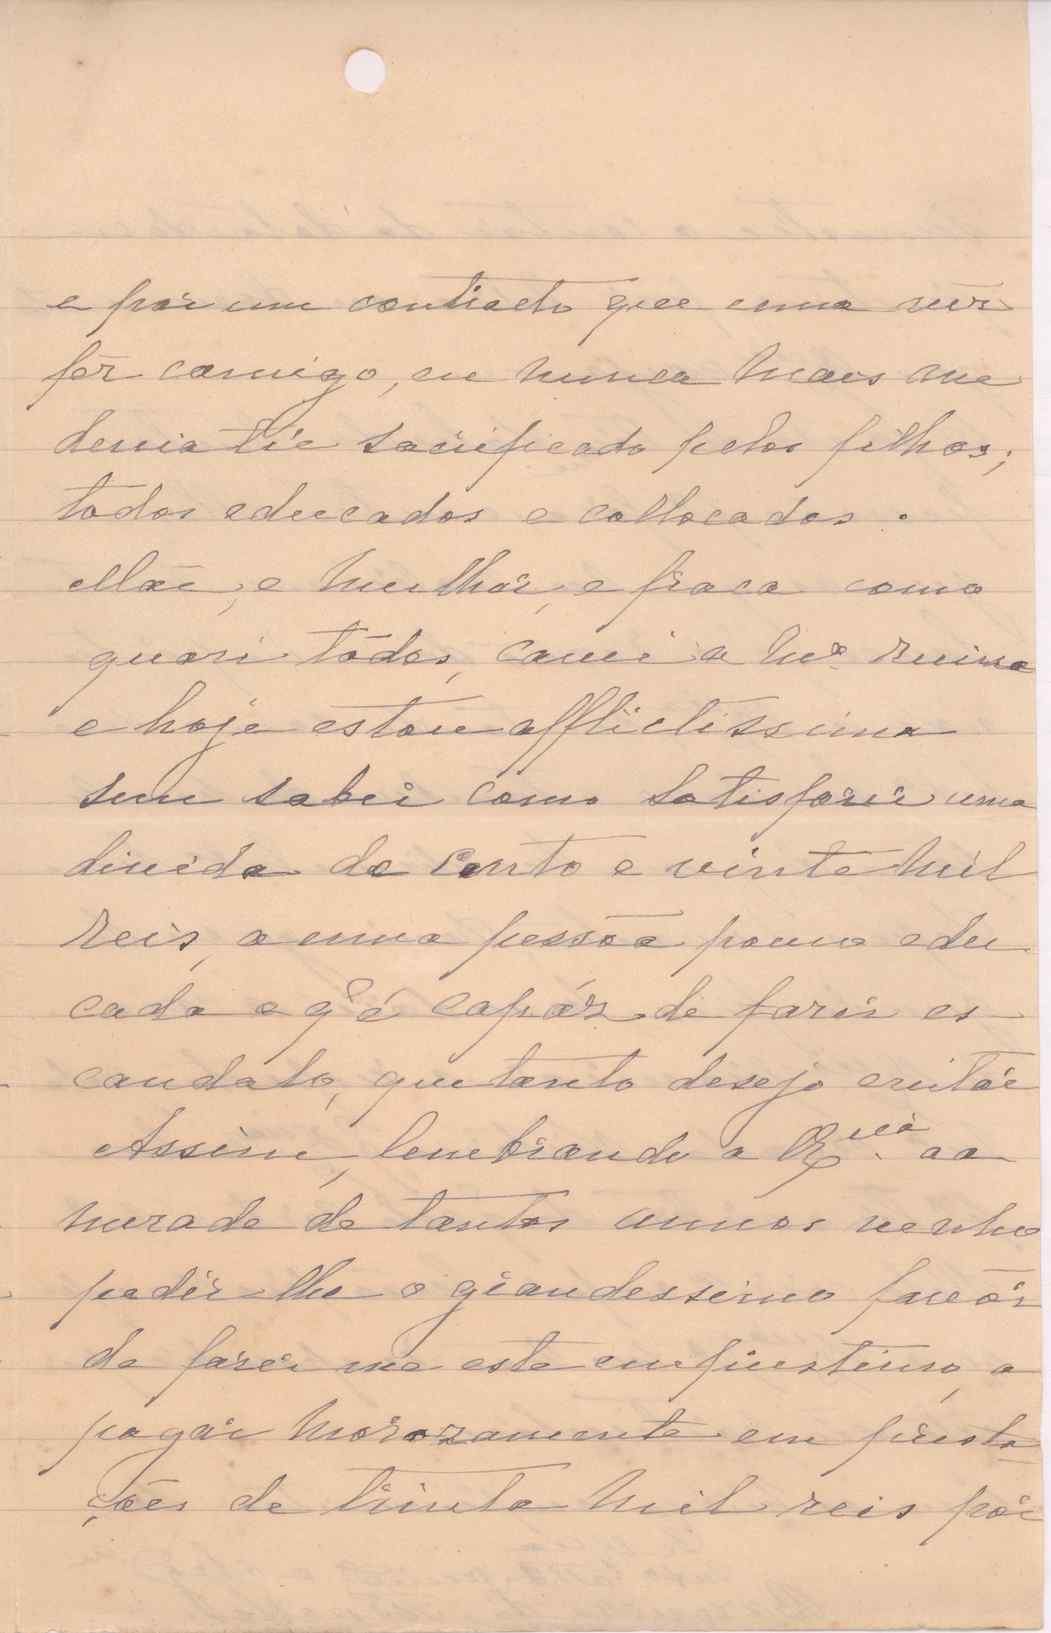 e por um contracto que uma vez
fôr comigo, eu nunca mais me
devia têr sacrificado pelos filhos;
todos educados e collocados.
Mãe, e mulhér, e fraca como
quasi tôdos, cavei a mª ruina
e hoje estou afflictissima
sem saber como satisfazer uma
divida de cento e vinte mil
reis, a uma pessôa pouco edu
cada e q̃ é capáz de fazer es-
candalo, que tanto desejo evitár
Assim, lembrando a Exᶜⁱᵃ. a a
mizade de tantos annos venho
pedir-lhe o grandessimo favôr
de fazer me este emprestimo, a
pagár morozamente em presta
ções de trinta mil reis pôr